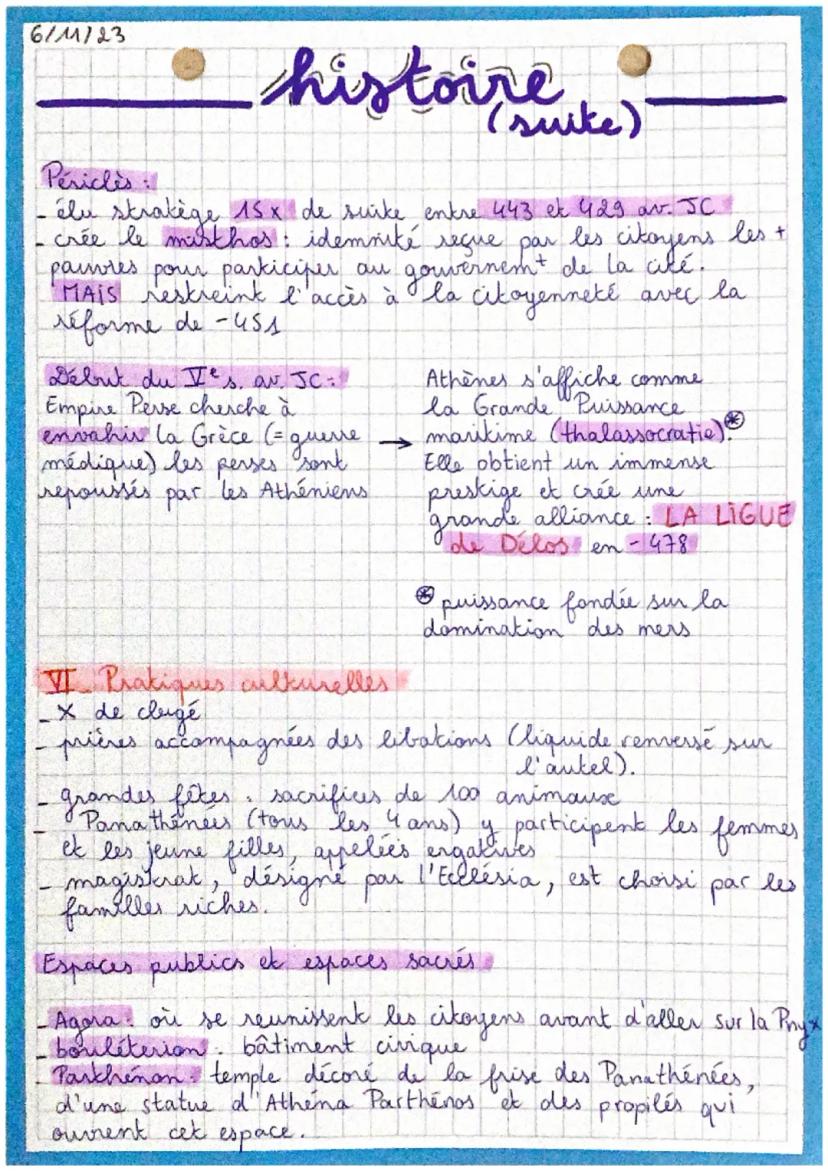 6/11/23
histoire
(suite)
Périclès :
- élu stratège 15x de suite entre 443 et 429 av. JC
- crée le misthos : idemnité reçue par les citoyens les +
pauvres pour participer au gouvernemt de la cité.
MAIS restreint l'accès à la citoyenneté avec la
réforme de -451
Début du Ve s. av. JC :
Empire Perse cherche à
envahir la Grèce (= guerre
médique) les perses sont
repoussés par les Athéniens
→ Athènes s'affiche comme
la Grande Puissance
maritime (thalassocratie).⊛
Elle obtient un immense
prestige et crée une
grande alliance : LA LIGUE
de Délos en -478
⊛ puissance fondée sur la
domination des mers
VI_ Pratiques culturelles
- X de clergé
- prières accompagnées des libations (liquide renversé sur
l'autel).
- grandes fêtes : sacrifices de 100 animaux
- Panathénées (tous les 4 ans) y participent les femmes
et les jeune filles, appelées ergatives
- magistrat, désigné par l'Ecclésia, est choisi par les
familles riches.
Espaces publics et espaces sacrés :
- Agora : où se reunissent les citoyens avant d'aller sur la Pnyx
- bouléterion : bâtiment civique
- Parthénon : temple décoré de la frise des Panathénées,
d'une statue d'Athéna Parthénos et des propilés qui
ouvrent cet espace.